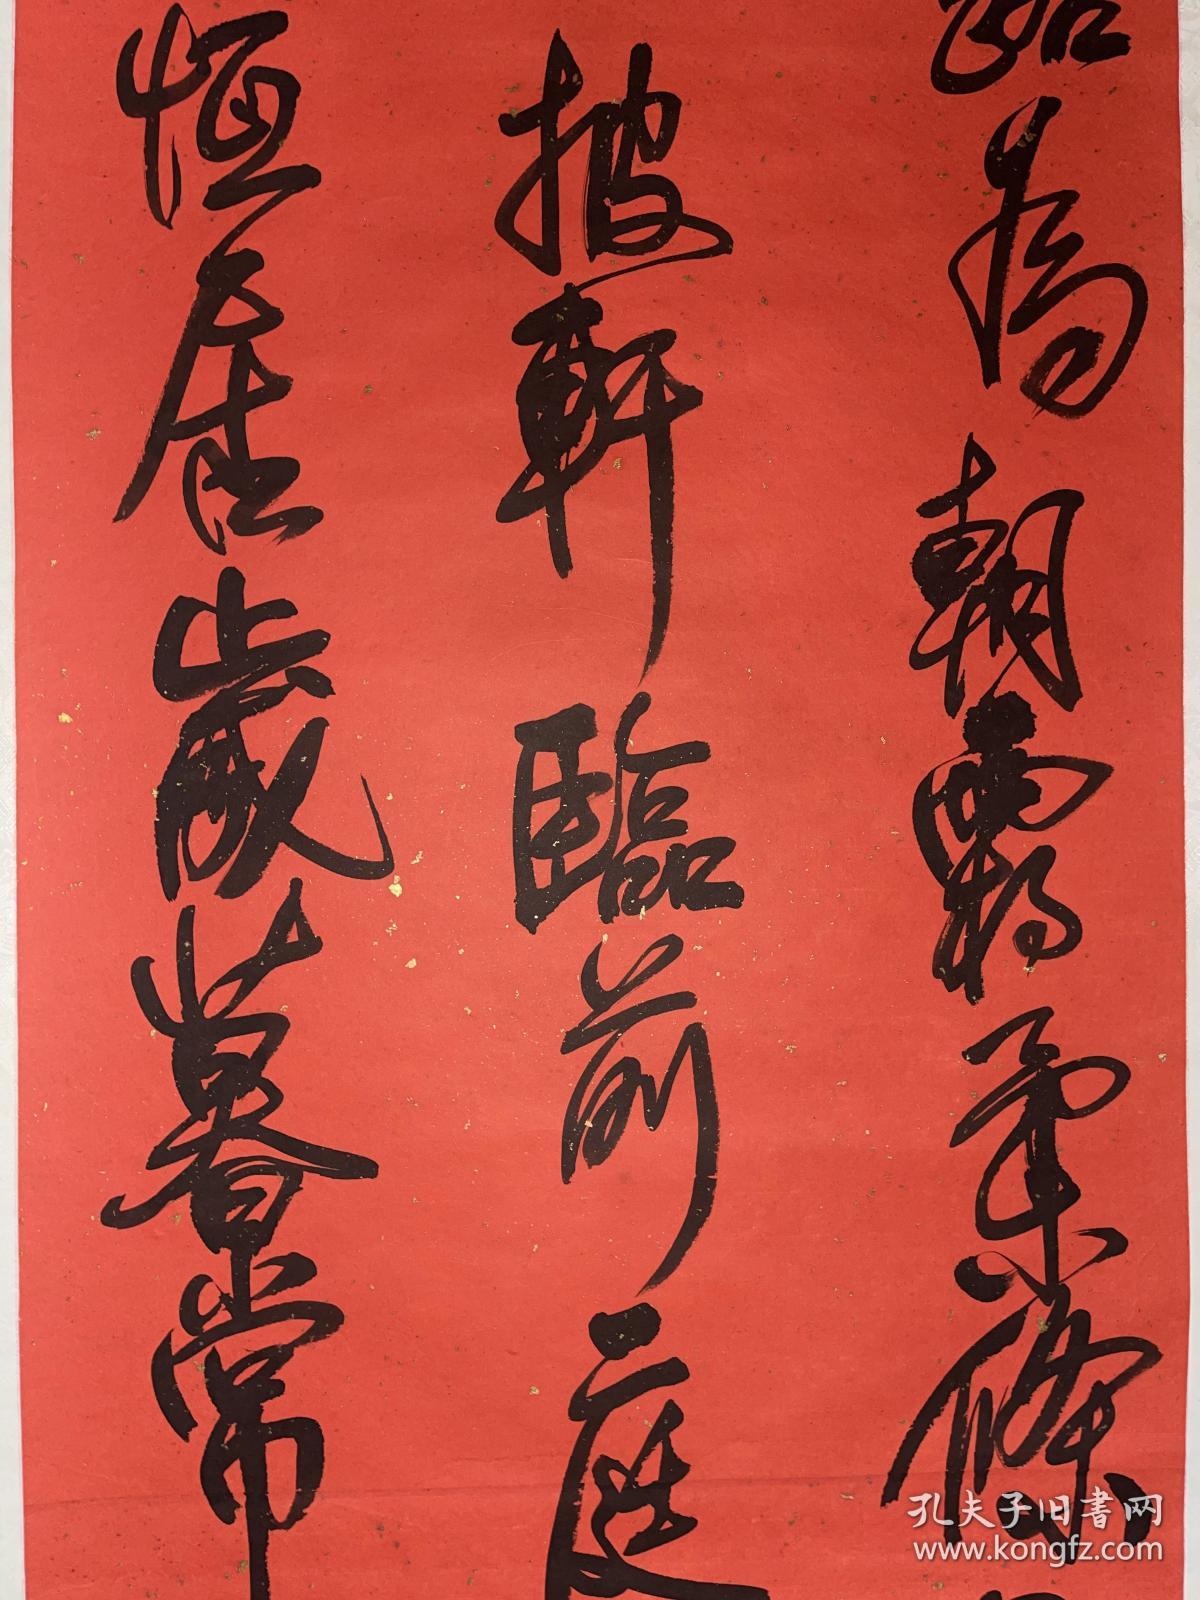 為朝霜柔條
披軒臨前庭
恒居歲暮常
孔夫子旧書网
www.kongfz.com